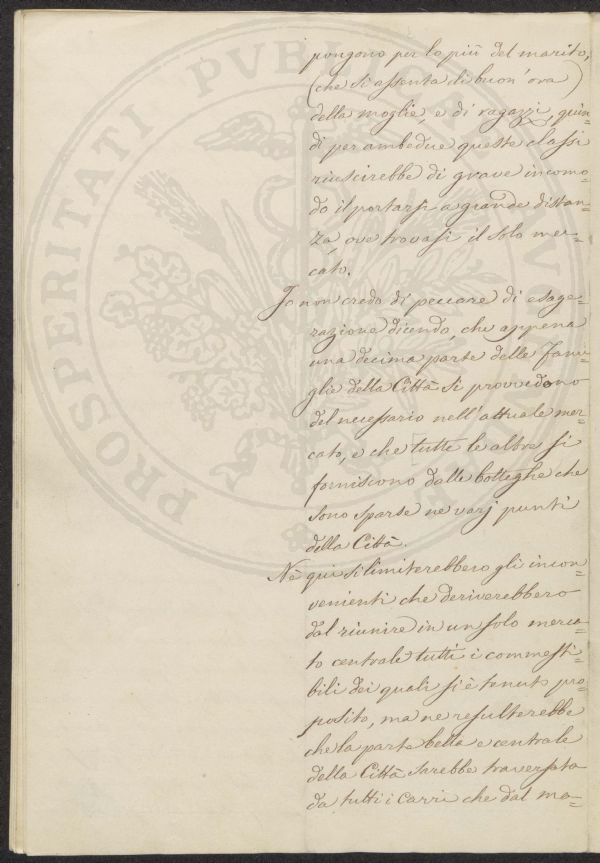 pongono per lo più del marito,
(che si assenta di buon'ora)
della moglie, e di ragazzi, quin=
di per ambedue queste classi
riuscirebbe di grave incomo=
do il portarsi a grande distan=
za, ove trovasi il solo mer=
cato.
Io non credo di peccare di esage=
razione dicendo, che appena
una decima parte delle Fami=
glie della Città si provvedono
del necessario nell'attuale mer=
cato, e che tutte le altre si
forniscono dalle botteghe che
sono sparse ne varj punti
della Città.
Nè qui si limiterebbero gli incon=
venienti che deriverebbero
dal riunire in un solo merca=
to centrale tutti i commesti=
bili dei quali si è tenuto pro=
posito, ma ne resulterebbe
che la parte bella e centrale
della Città sarebbe traversata
da tutti i Carri che dal me=
PROSPERITATI PVBLICAE